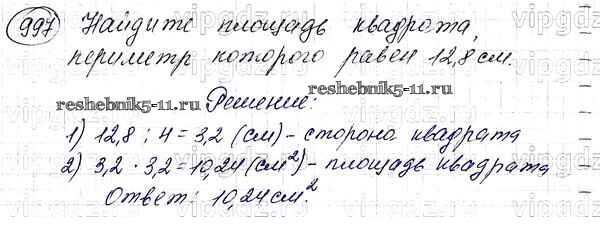 997 Найдите площадь квадрата,
периметр которого равен 12,8 см.
reshebnik5-11.ru
Решение:
reshebnik5-11.ru
1) 12,8 : 4 = 3,2 (см) - сторона квадрата
2) 3,2 · 3,2 = 10,24 (см²) - площадь квадрата
Ответ: 10,24 см².